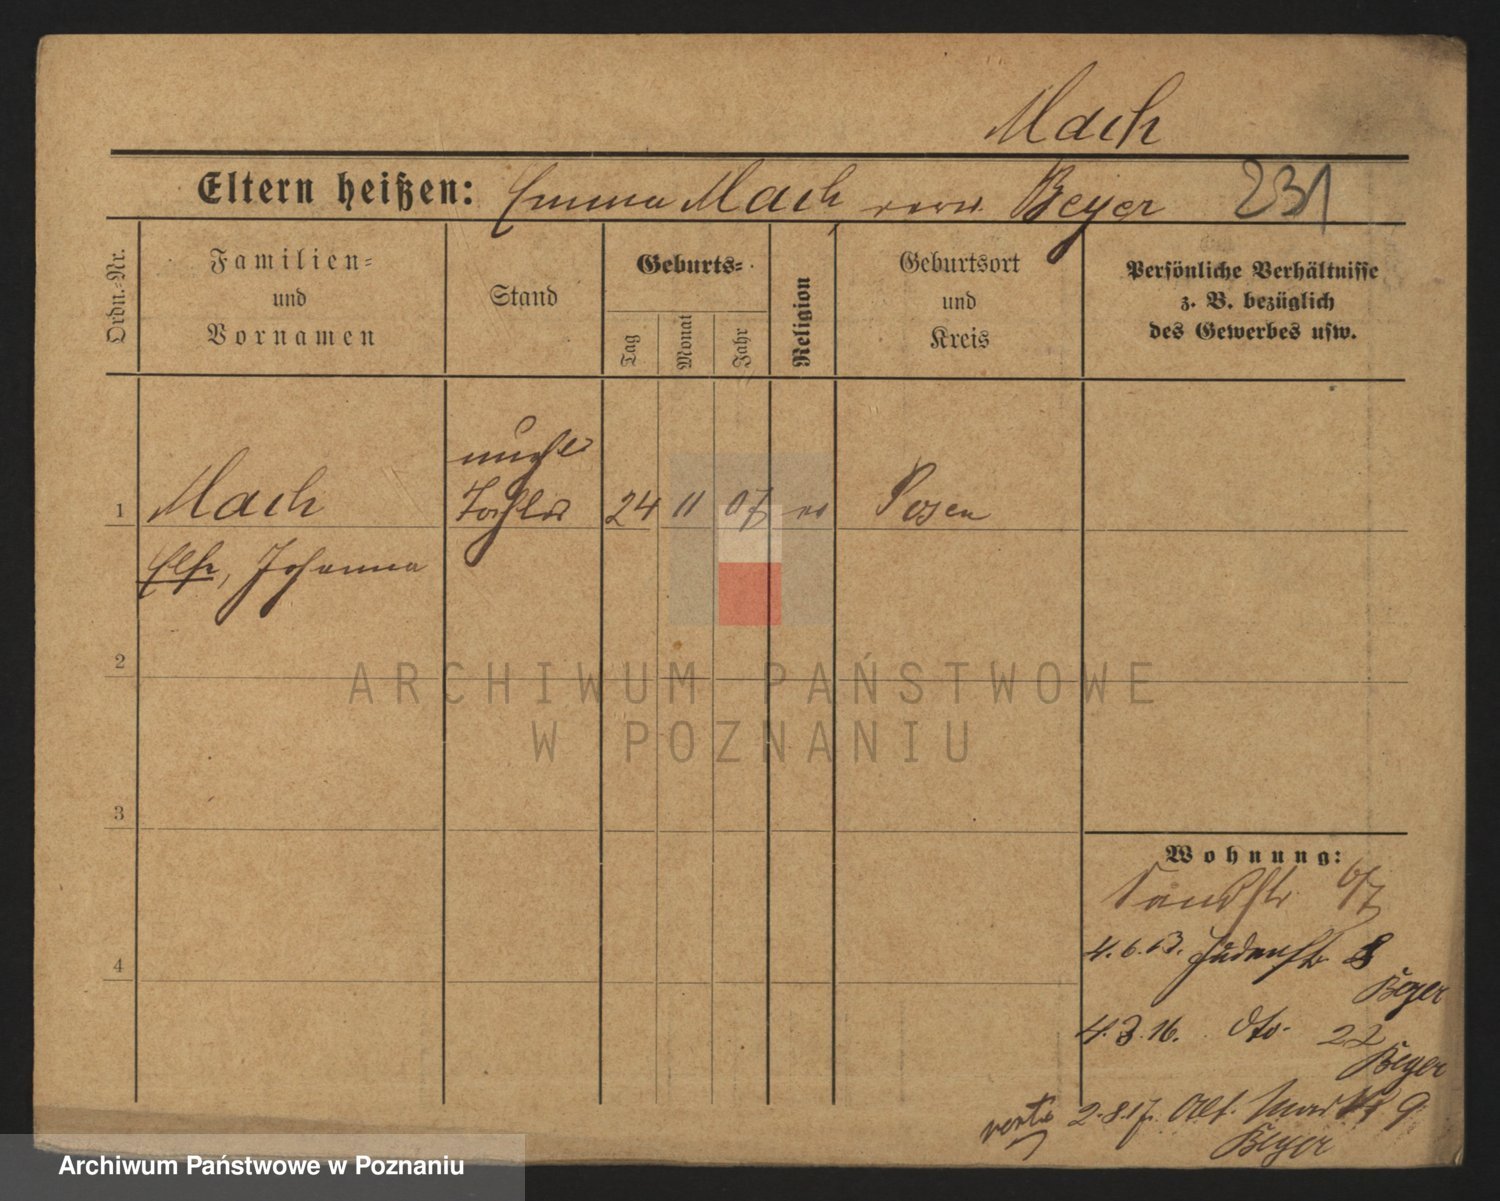 Mach
Eltern heißen: Emma Mach verw. Beyer 231
Ordn.-Nr.
Familien-
und
Vornamen
Stand
Geburts-
Tag
Monat
Jahr
Religion
Geburtsort
und
Kreis
Persönliche Verhältnisse
z. B. bezüglich
des Gewerbes usw.
unehl
1 Mach Tochter 24 11 07 ev Posen
Else, Johanna
2
3
4
Wohnung:
Sandstr 6/7
4.6.13. Judenstr. 8
Beyer
4.3.16. dto. 22
Beyer
verte 2.8.17. Alt. Markt 9
Beyer
ARCHIWUM PAŃSTWOWE
W POZNANIU
Archiwum Państwowe w Poznaniu